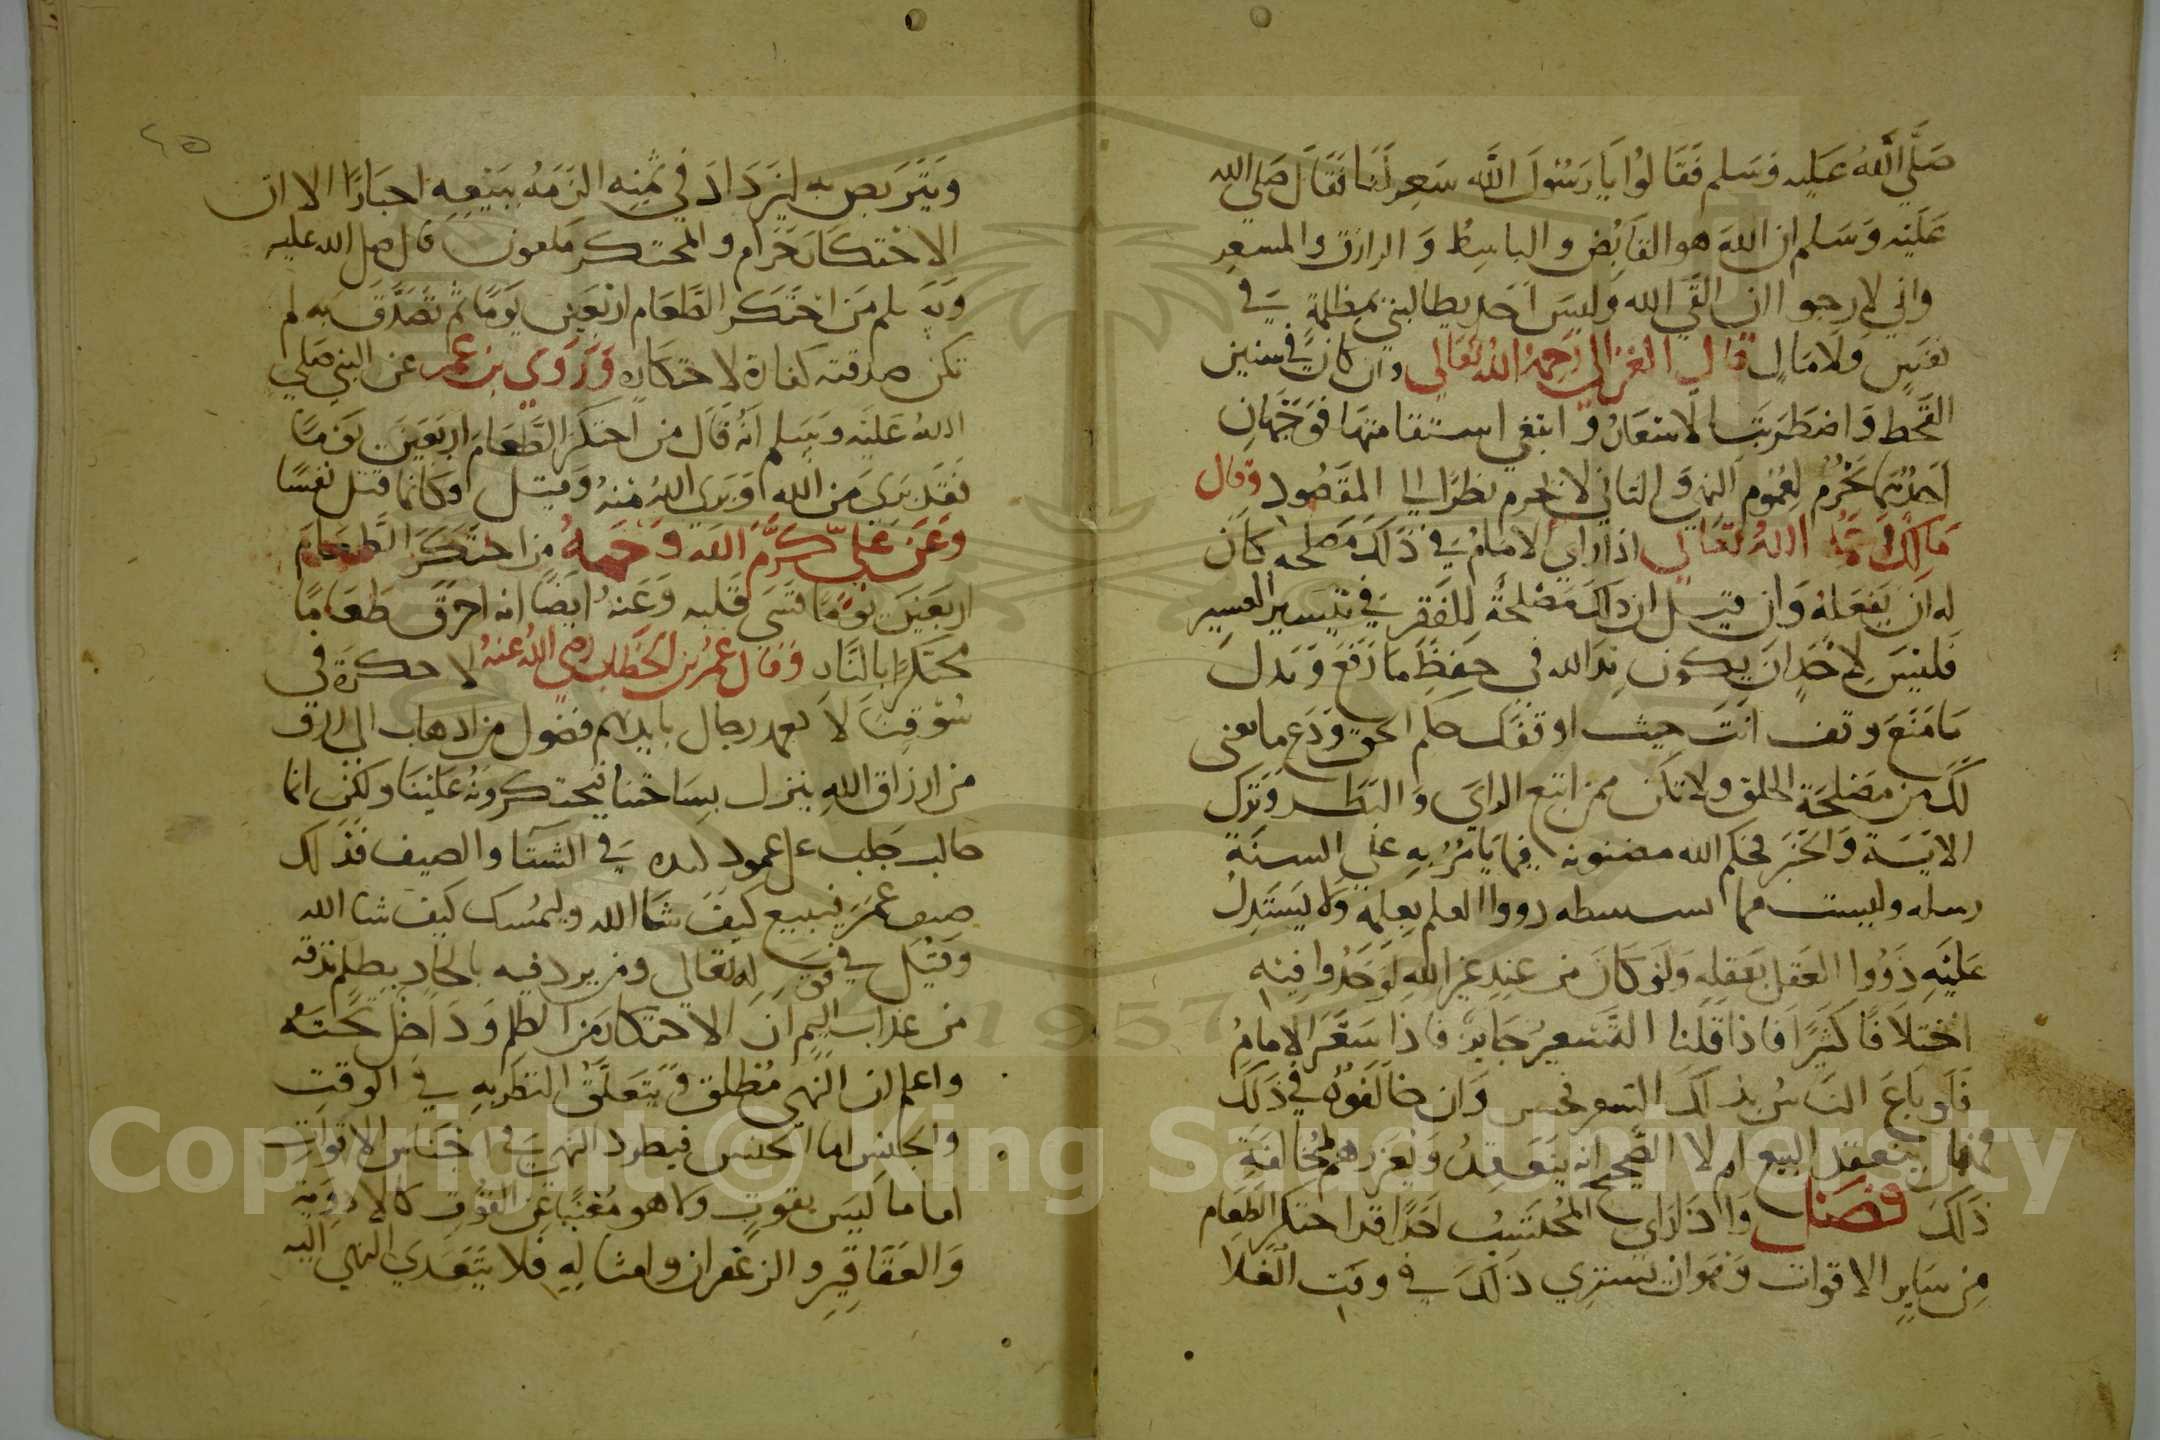 صَلَّي اللهُ عَليه وَسَلم فَقَالوُا يَا رَسُولَ اللَّه سَعِر لَنَا فَقَالَ صَلي الله
عَليْه وَسَلم ان اللهَ هو القَابِض والباسِط وَالرازق والمسعِر
واني لارجوا ان القَي الله وَليسَ اَحَد يطالبني بمظلمةٍ فيَ
نفسٍ ولَا مَالٍ قال الغزالي رَحِمهُ اللهُ تعَالي وان كانَ في سنين
القحط وَاضطرَبَت الاسْعَارُ وابتغي استقامتهَا فوَجَهَانِ
اَحَدُهُمَا يَحْرُم لِعُمُومِ النهي وَالثاني لايحرم نظرًا الي المقصُود وقال
مَالك رحمهُ اللهُ تعَالي اذا رَايَ الامَامُ فيَ ذَلكَ مَصلحه كانَ
له انَ يَفعَلهُ وَان قيل ان ذاكَ مَصْلحةُ للفَقرِ فيَ تَيسير العسِير
فَليْسَ لاحَدٍ انَ يكون ندا لله في حِفظِ مَا رَفعَ وَبَدل
مَا مَنَعَ وقف اَنتَ حيث اوقفك حكم الحق وَدع ما يعني
لكَ من مَصْلحَة الخلق ولا تكن ممن اتبَع الرايَ وَالنظر وَتَرك
الايَـة وَالخَبَر فحكم الله مضنونه فيما يَامُرُ بهِ علي السنَة
رسله وليست مما
عَليْهِ ذوُوا العَقل بعَقلهِ وَلوَ كانَ من عندِ غيرِ اللهِ لوَجَدُوا فيْهِ
اختلَافًا كثيرًا فاذا قلنا التَسْعِيرُ جَايز فاذا سَعَّرَ الامَامُ
فَلو بَاعَ النَاسُ بذلكَ السعر نحسن وَان خالفوُهُ في ذَلكَ
فهل ينعقد البيع ام لا الصَحيح انه يَنعَقِدُ وَيعزرهم لمخالفَةِ
ذلكَ فصل وَاذا رَايَ المُحْتسِبُ احَدًا قد احتكر الطعَام
مِن سَايرِ الاقوات وَهوَ ان يَشتري ذلكَ في وقت الغَلا
٤٥
وَيَتَرَبص به ليَزدَادَ في ثمنِهِ الزمَهُ ببَيْعِهِ اجبَارًا الا ان
الاحتكار حَرَام والمحتكر مَلعون قال صلي الله عليه
وَسَلم مَن احتكَر الطَعَام اربَعينَ يَومًا ثم تصَدَّقَ به لم
تكن صدقته كفارة لاحتكاره وَرَوي بن عمر عن النبي صَلي
اللهُ عَليْه وَسَلم اَنهُ قالَ من احتكر الطَعَامَ اربَعينَ يَومًا
فَقَد بَرئَ مِن الله وَبَرئَ اللهُ مْنهُ وَقيل وَكانما قتل نفسًا
وَعَن عَلي كَرَّمَ الله وَجَههُ من احتكَر الطعامَ
اربَعينَ يومًا قسَي قلبه وَعَنهُ ايضًا انه احرقَ طَعَامًا
محتكرًا بالنَّار وَقال عمرُ بن الخَطاب رضي اللهُ عَنهُ لا حكرَة في
سُوقِنَا لا يعمد رجال بايديهم فضول من اذهاب الي رزق
من ارزاق اللهِ ينزل بسَاحتنا فيحتكرونهُ عَليْنا ولكن انما
جالب جَلبَ عَلي عمود كبده في الشتَا والصيف فذلك
ضيف عمَر فيَبيع كيفَ شَا الله وليمسْك كيف شا الله
وَقيْل في قولِهِ تعَالي ومن يرد فيه بالحاد بظلم نذقه
من عذاب اليم ان الاحتكار من الظلم وَدَاخل تَحتَهُ
واعلم ان النهي مُطلق وَيتَعَلق النظر بهِ في الوَقتِ
والجانِس اما الجنس فيطرد النهي فيَ اجنَاس الاقواتِ
اما ما ليسَ بقوتٍ ولا هو مُعْينا عن القوتِ كالادوية
وَالعَقاقير والزعفران وامثالهِ فلا يَتَعَدي النهي اليه
Copyright © King Saud University
1957